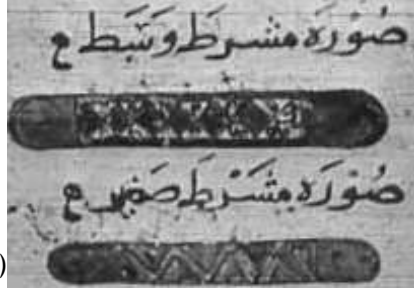 صُوْرَة مشرَط وَسَط ع
صُوْرَة مِشْرَط صَغير ع
)